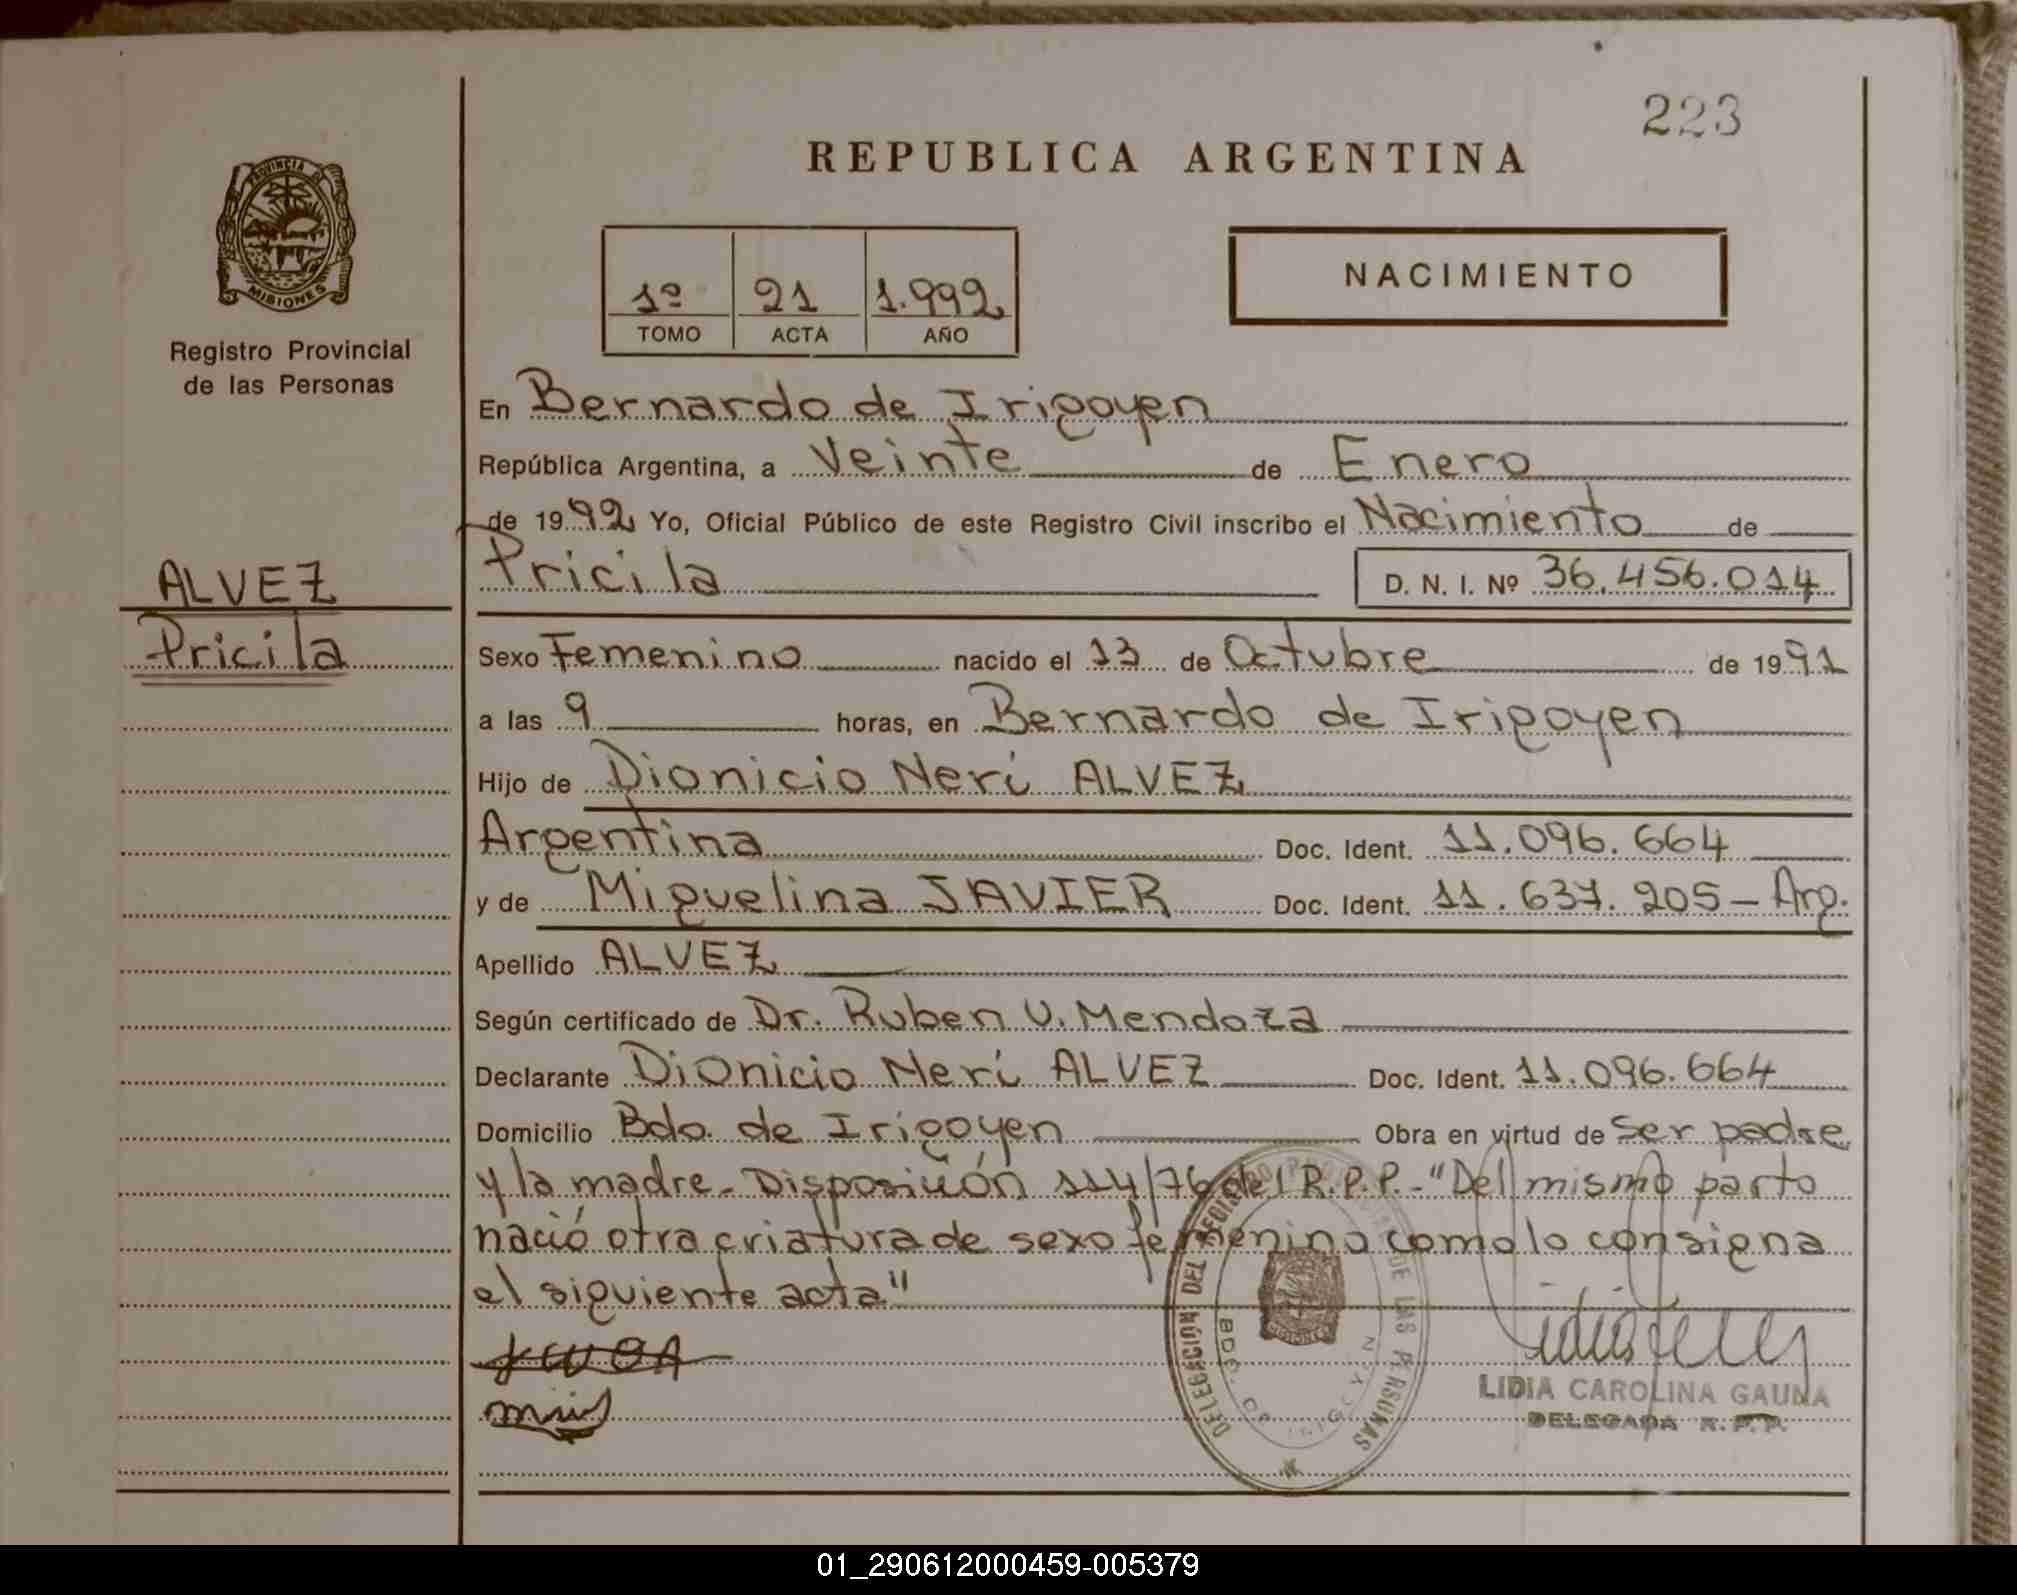 223
REPUBLICA ARGENTINA
PROVINCIA D
MISIONES
Registro Provincial
de las Personas
1º 21 1.992
TOMO ACTA AÑO
NACIMIENTO
En Bernardo de Irigoyen
República Argentina, a Veinte de Enero
de 1992 Yo, Oficial Público de este Registro Civil inscribo el Nacimiento de
Pricila D. N. I. Nº 36.456.014
ALVEZ
Pricila
Sexo Femenino nacido el 13 de Octubre de 1991
a las 9 horas, en Bernardo de Irigoyen
Hijo de Dionicio Neri ALVEZ
Argentina Doc. Ident. 11.096.664
y de Miguelina JAVIER Doc. Ident. 11.637.205 - Arg.
Apellido ALVEZ
Según certificado de Dr. Ruben V. Mendoza
Declarante Dionicio Neri ALVEZ Doc. Ident. 11.096.664
Domicilio Bdo. de Irigoyen Obra en virtud de ser padre
y la madre - Disposición 114/76 del R.P.P. - "Del mismo parto
nació otra criatura de sexo femenino como lo consigna
el siguiente acta"
DELEGACION DEL REGISTRO PROVINCIAL DE LAS PERSONAS
BDO. DE IRIGOYEN
MISIONES
LIDIA CAROLINA GAUNA
DELEGADA R. P. P.
01_290612000459-005379